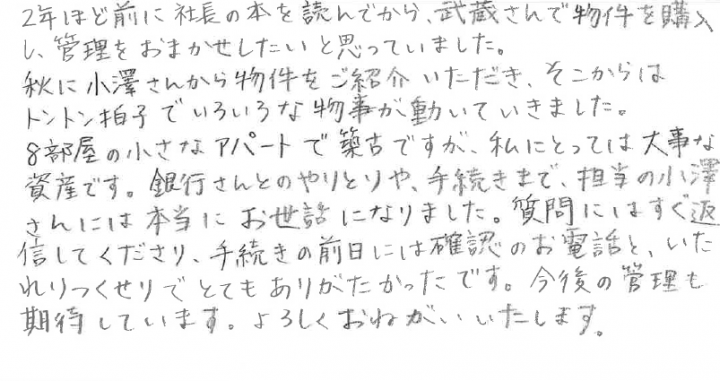 2年ほど前に社長の本を読んでから、武蔵さんで物件を購入
し、管理をおまかせしたいと思っていました。
秋に小澤さんから物件をご紹介いただき、そこからは
トントン拍子でいろいろな物事が動いていきました。
8部屋の小さなアパートで築古ですが、私にとっては大事な
資産です。銀行さんとのやりとりや、手続きまで、担当の小澤
さんには本当にお世話になりました。質問にはすぐ返
信してくださり、手続きの前日には確認のお電話と、いた
れりつくせりでとてもありがたかったです。今後の管理も
期待しています。よろしくおねがいいたします。